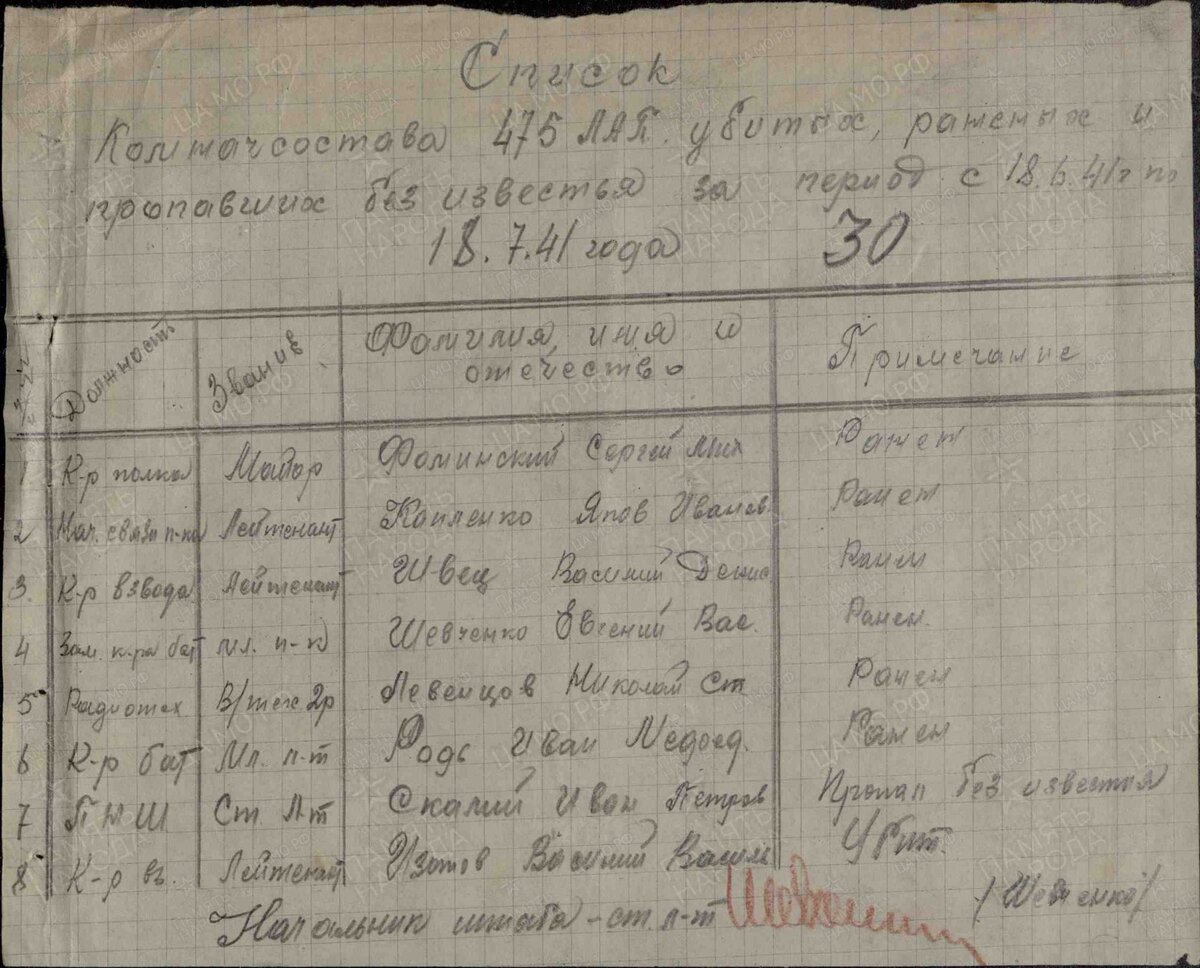 Список
Комначсостава 475 ЛАП. убитых, раненых и
пропавших без известья за период с 18.6.41г по
18.7.41 года 30
Должность Звание Фамилия, имя и Примечание
отечество
1 К-р полка Майор Фоминский Сергей Мих Ранен
2 Нач. связи п-ка Лейтенант Коиленко Яков Иванов. Ранен
3. К-р взвода Лейтенант Швец Василий Денис Ранен
4 Зам. к-ра бат мл. п-к Шевченко Евгений Вас. Ранен.
5 Радиотех В/тех 2р Левенцов Николай Ст Ранен
6 К-р бат Мл. л-т Родь Иван Ранен
7 ПНШ Ст Л-т Скалий Иван Петров Пропал без известья
8 К-р вз. Лейтенант Изотов Василий Василь Убит.
Начальник штаба - ст. л-т /Шевченко/
ЦАМО.РФ
ПАМЯТЬ НАРОДА